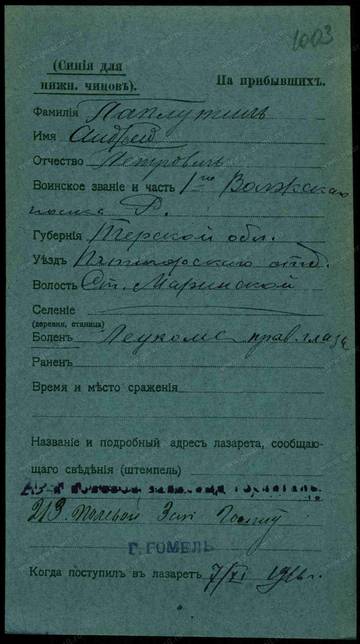 1003
(Синія для
нижн. чиновъ). На прибывшихъ.
Фамилія
Имя Андрей
Отчество Петровичъ
Воинское званіе и часть 1го Волжскаго
полка Р.
Губернія Терской обл.
Уѣздъ Пятигорскаго отд.
Волость Ст. Марьинской
Селеніе
(деревня, станица)
Боленъ Леукома прав. глаза
Раненъ
Время и мѣсто сраженія
Названіе и подробный адресъ лазарета, сообщаю-
щаго свѣдѣнія (штемпель)
213 Полевой Зап. Госпит
Г. ГОМЕЛЬ
Когда поступилъ в лазаретъ 7/VI 1916 г.